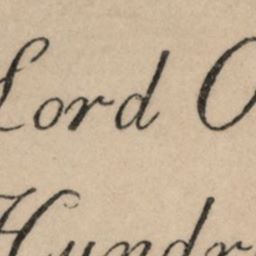 Lord O
Hundr